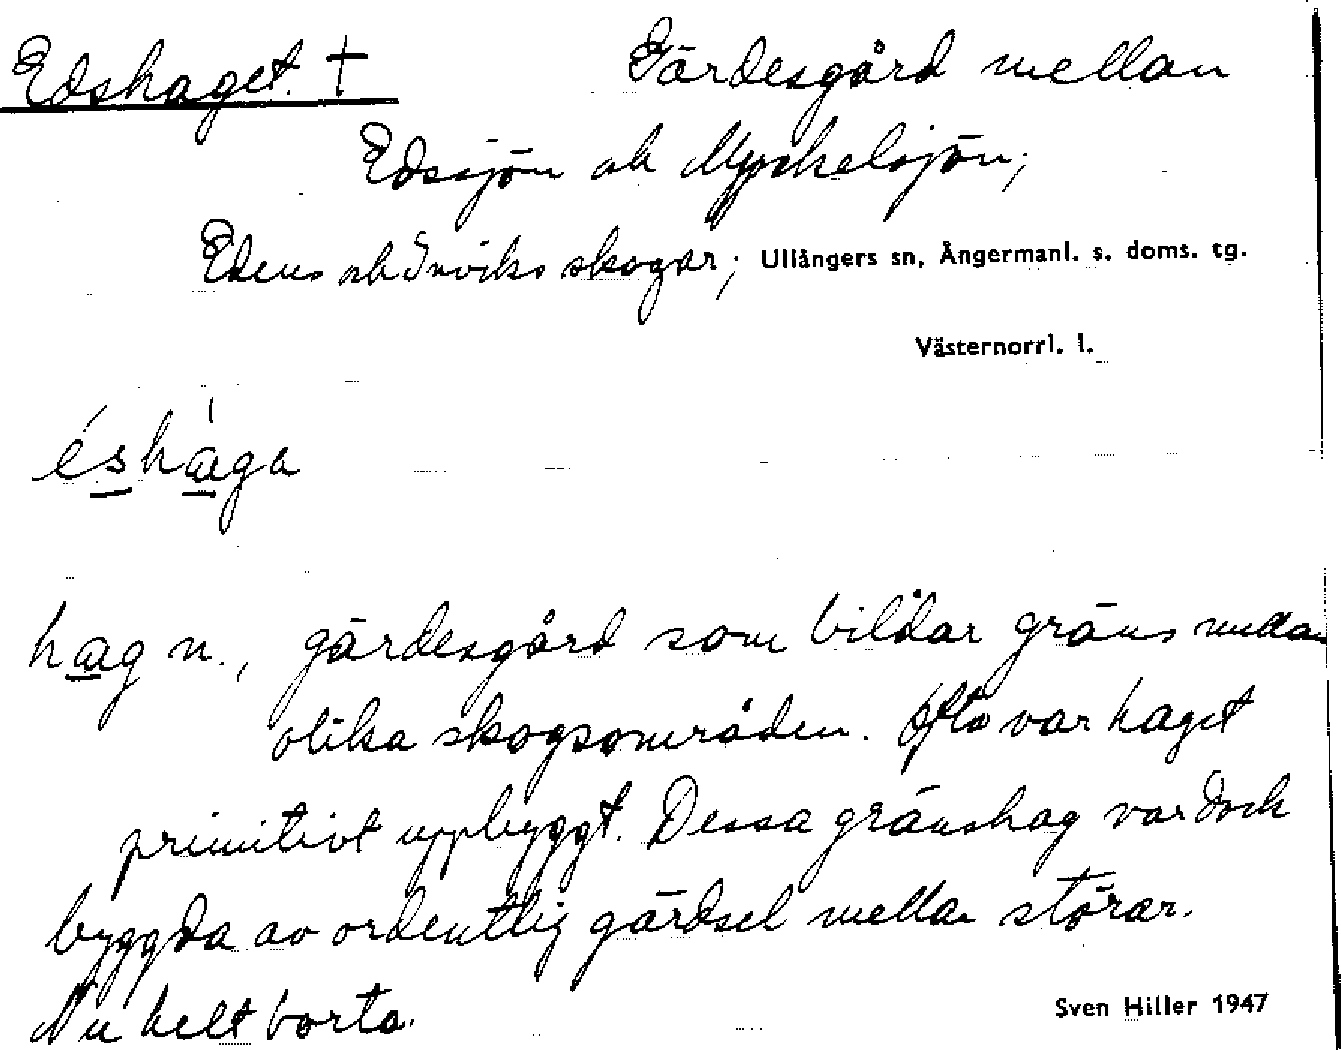 Edshaget. † Gärdesgård mellan
Edssjön ock Myckelsjön;
Edens ock Inviks skogar; Ullångers sn, Ångermanl. s. doms. tg.
Västernorrl. l.
éshàga
hag n., gärdesgård som bildar gräns mellan
olika skogsområden. Ofta var haget
primitivt uppbyggt. Dessa gränshag var dock
byggda av ordentlig gärdsel mellan störar.
Nu helt borta.
Sven Hiller 1947